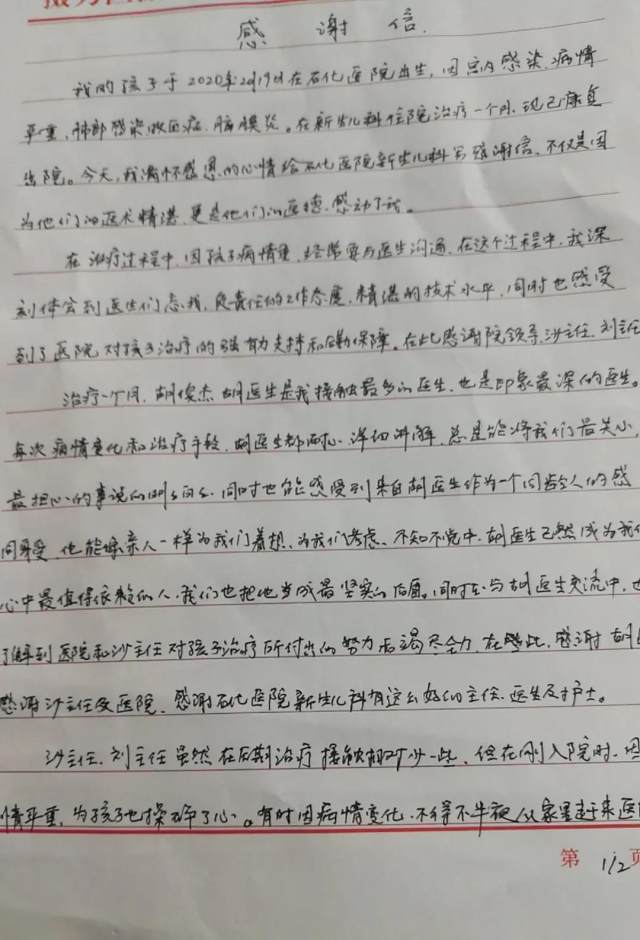 感谢信.
我的孩子于2020年2月19日在石化医院出生,因宫内感染,病情
严重,肺部感染,败血症,脑膜炎。在新生儿科住院治疗一个月,现已康复
出院。今天,我满怀感恩的心情给石化医院新生儿科写感谢信,不仅是因
为他们的医术精湛,更是他们的医德,感动了我。
在治疗过程中,因孩子病情重,经常要与医生沟通,在这个过程中,我深
刻体会到医生们忘我,负责任的工作态度,精湛的技术水平,同时也感受
到了医院对孩子治疗的强有力支持和后勤保障。在此感谢院领导,沙主任,刘主任
治疗一个月,胡俊杰 胡医生是我接触最多的医生,也是印象最深的医生。
每次病情变化和治疗手段,胡医生都耐心,详细讲解,总是能将我们最关心,
最担心的事说的明明白白,同时也能感受到来自胡医生作为一个同龄人的感
同身受,他能像亲人一样为我们着想,为我们考虑,不知不觉中,胡医生已然成为我们
心中最值得依赖的人,我们也把他当成最坚实的后盾。同时在与胡医生交流中,也
了解到医院和沙主任对孩子治疗所付出的努力和竭尽全力,在此,感谢胡医
感谢沙主任及医院,感谢石化医院新生儿科有这么好的主任,医生及护士。
沙主任,刘主任虽然在后期治疗接触相对少一些,但在刚入院时,因
情严重,为孩子也操碎了心。有时因病情变化,不得不半夜从家里赶来医院
第 1/2 页